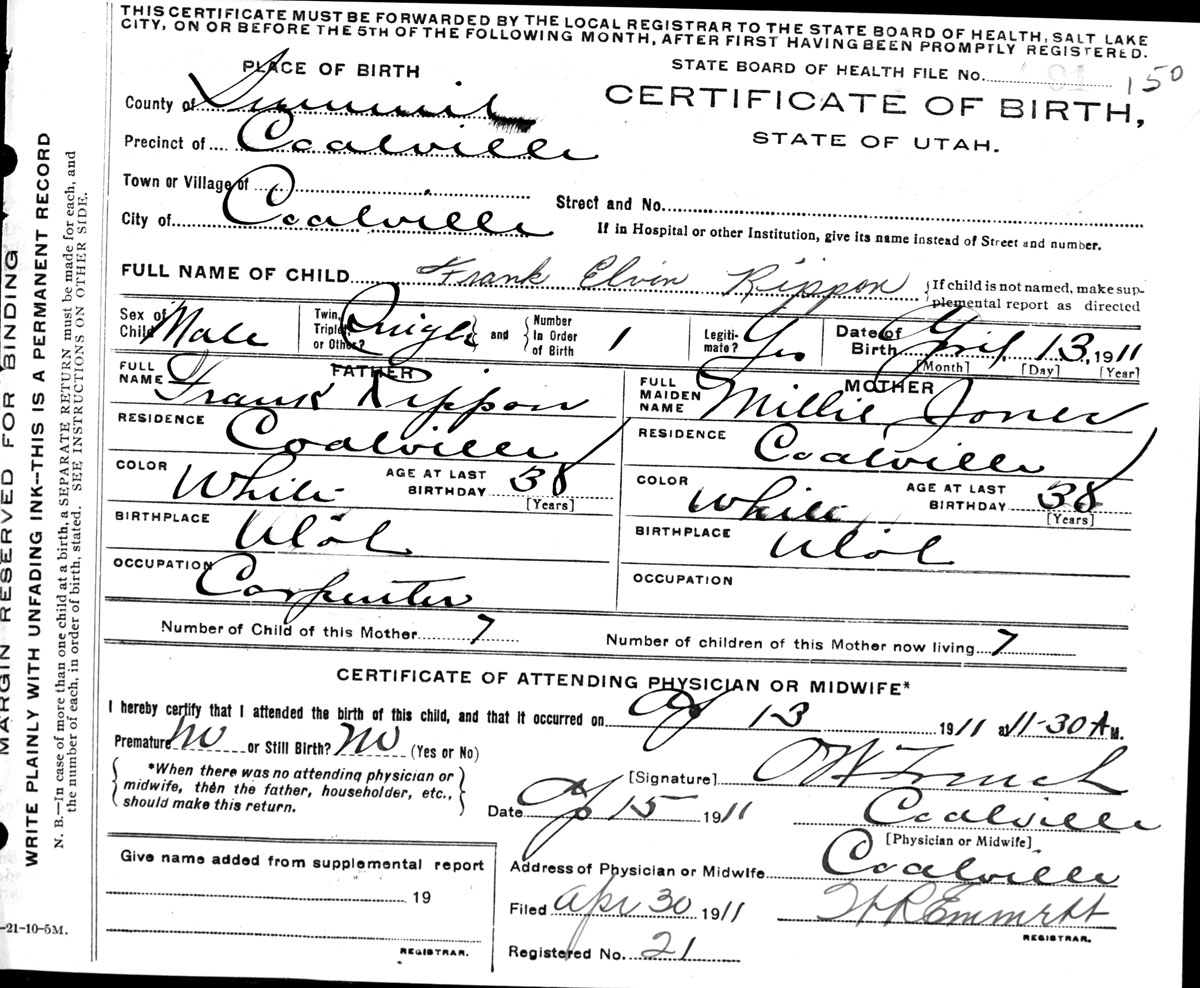 THIS CERTIFICATE MUST BE FORWARDED BY THE LOCAL REGISTRAR TO THE STATE BOARD OF HEALTH, SALT LAKE
CITY, ON OR BEFORE THE 5TH OF THE FOLLOWING MONTH, AFTER FIRST HAVING BEEN PROMPTLY REGISTERED.
PLACE OF BIRTH
STATE BOARD OF HEALTH FILE No. 150
County of Summit
CERTIFICATE OF BIRTH,
STATE OF UTAH.
Precinct of Coalville
Town or Village of
Street and No.
City of Coalville
If in Hospital or other Institution, give its name instead of Street and number.
FULL NAME OF CHILD Frank Elvin Rippon {If child is not named, make sup-
plemental report as directed
Sex of Child Male
Twin, Triplet, or Other? Single } and { Number In Order of Birth 1
Legiti-mate? Yes
Date of Birth April 13, 1911
[Month] [Day] [Year]
FATHER
FULL NAME Frank Rippon
RESIDENCE Coalville
COLOR White AGE AT LAST BIRTHDAY 38
[Years]
BIRTHPLACE Utah
OCCUPATION Carpenter
MOTHER
FULL MAIDEN NAME Millie Jones
RESIDENCE Coalville
COLOR White AGE AT LAST BIRTHDAY 38
[Years]
BIRTHPLACE Utah
OCCUPATION
Number of Child of this Mother 7 Number of children of this Mother now living 7
CERTIFICATE OF ATTENDING PHYSICIAN OR MIDWIFE*
I hereby certify that I attended the birth of this child, and that it occurred on Ap 13 1911 at 11-30 A M.
Premature No or Still Birth? No (Yes or No)
{ *When there was no attending physician or
midwife, then the father, householder, etc.,
should make this return. }
[Signature] O W French
Date Ap 15 1911 Coalville
[Physician or Midwife]
Give name added from supplemental report
19
REGISTRAR.
Address of Physician or Midwife Coalville
Filed Apr 30 1911 H R Emmett
REGISTRAR.
Registered No. 21
MARGIN RESERVED FOR BINDING
WRITE PLAINLY WITH UNFADING INK--THIS IS A PERMANENT RECORD
N. B.—In case of more than one child at a birth, a SEPARATE RETURN must be made for each, and
the number of each, in order of birth, stated. SEE INSTRUCTIONS ON OTHER SIDE.
-21-10-5M.